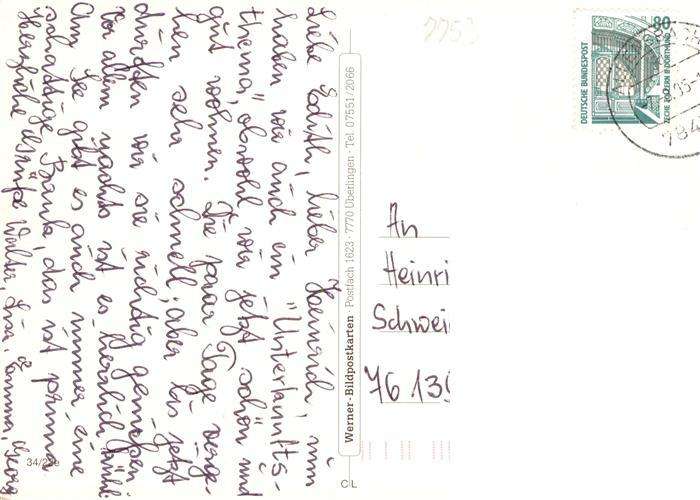 Liebe Edith, lieber Heinrich nun
haben wir auch ein "Unterkunfts-
thema", obwohl wir jetzt schön und
gut wohnen. Die paar Tage verge-
hen sehr schnell, aber bis jetzt
durften wir sie richtig genießen
Vor allem nachts ist es herrlich kühl
Am See gibt es auch immer eine
schattige Bank, das ist prima
Herzliche Grüße Walter, Lisa, Emma, Georg
34/22e
Werner-Bildpostkarten · Postfach 1623 · 7770 Überlingen · Tel. 07551/2066
C L
2253
An
Heinri
Schwei
76 139
DEUTSCHE BUNDESPOST
80
ZECHE ZOLLERN II DORTMUND
95-
784